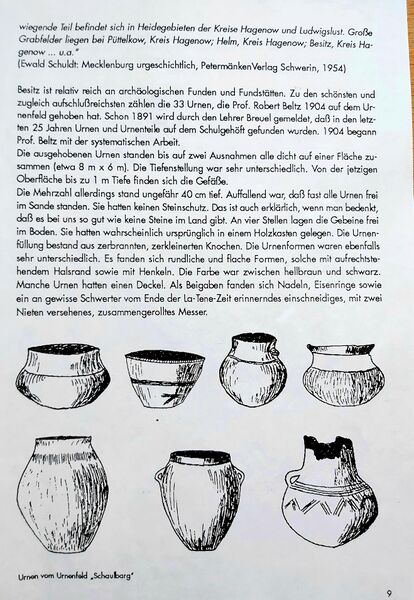 wiegende Teil befindet sich in Heidegebieten der Kreise Hagenow und Ludwigslust. Große
Grabfelder liegen bei Püttelkow, Kreis Hagenow; Helm, Kreis Hagenow; Besitz, Kreis Ha-
genow ... u.a."
(Ewald Schuldt: Mecklenburg urgeschichtlich, PetermänkenVerlag Schwerin, 1954)
Besitz ist relativ reich an archäologischen Funden und Fundstätten. Zu den schönsten und
zugleich aufschlußreichsten zählen die 33 Urnen, die Prof. Robert Beltz 1904 auf dem Ur-
nenfeld gehoben hat. Schon 1891 wird durch den Lehrer Breuel gemeldet, daß in den letz-
ten 25 Jahren Urnen und Urnenteile auf dem Schulgehöft gefunden wurden. 1904 begann
Prof. Beltz mit der systematischen Arbeit.
Die ausgehobenen Urnen standen bis auf zwei Ausnahmen alle dicht auf einer Fläche zu-
sammen (etwa 8 m x 6 m). Die Tiefenstellung war sehr unterschiedlich. Von der jetzigen
Oberfläche bis zu 1 m Tiefe finden sich die Gefäße.
Die Mehrzahl allerdings stand ungefähr 40 cm tief. Auffallend war, daß fast alle Urnen frei
im Sande standen. Sie hatten keinen Steinschutz. Das ist auch erklärlich, wenn man bedenkt,
daß es bei uns so gut wie keine Steine im Land gibt. An vier Stellen lagen die Gebeine frei
im Boden. Sie hatten wahrscheinlich ursprünglich in einem Holzkasten gelegen. Die Urnen-
füllung bestand aus zerbrannten, zerkleinerten Knochen. Die Urnenformen waren ebenfalls
sehr unterschiedlich. Es fanden sich rundliche und flache Formen, solche mit aufrechtste-
hendem Halsrand sowie mit Henkeln. Die Farbe war zwischen hellbraun und schwarz.
Manche Urnen hatten einen Deckel. Als Beigaben fanden sich Nadeln, Eisenringe sowie
ein an gewisse Schwerter vom Ende der La-Tene-Zeit erinnerndes einschneidiges, mit zwei
Nieten versehenes, zusammengerolltes Messer.
Urnen vom Urnenfeld „Schaulbarg"
9